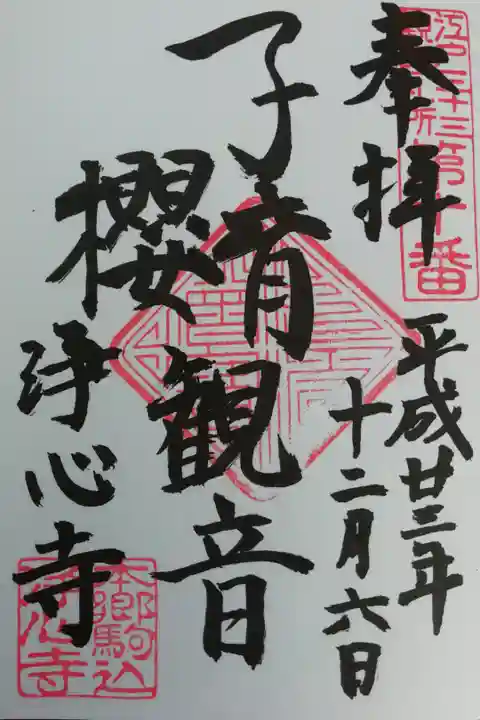 奉拝
江戸三十三観音札所第十番
平成廿三年
十二月六日
子育観音
櫻
浄心寺
本郷駒込
浄心寺